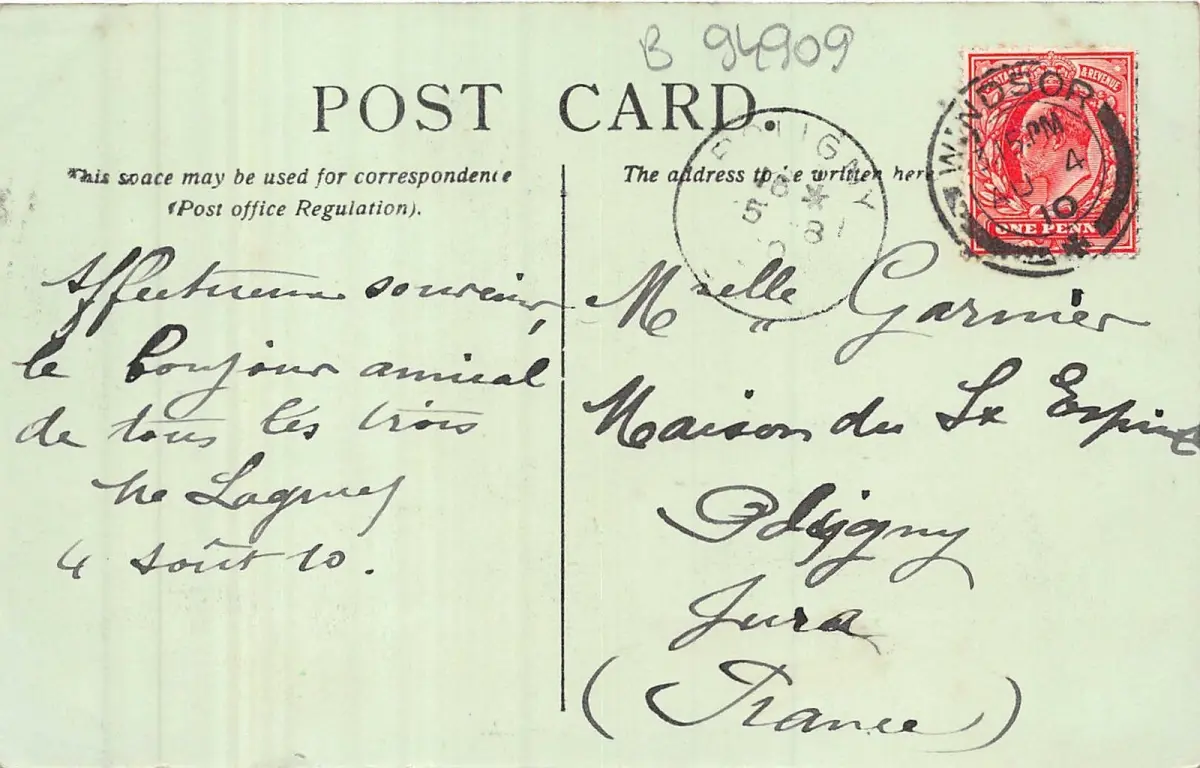 B 94909
POST CARD.
This space may be used for correspondence
(Post office Regulation).
The address to be written here
POSTAGE & REVENUE
ONE PENNY
WINDSOR
5. PM
AU 4
10
POLIGNY
5 8
Affectueux souvenir,
le bonjour amical
de tous les trois
4 août 10.
Melle Garnier
Maison du St Esprit
Poligny
Jura
(France)